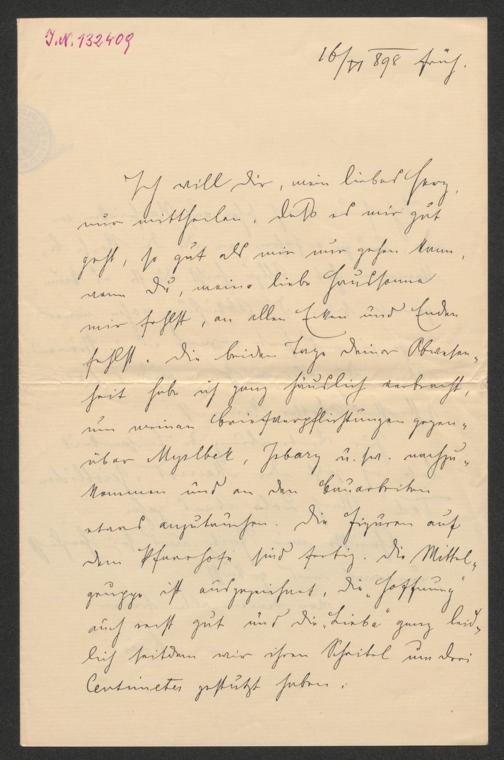 I.N. 132409
16/XI 898 früh.
Ich will dir, mein liebes Herz,
nur mittheilen, daß es mir gut
geht, so gut als mir nur gehen kann,
wenn Du, meine liebe Haussonne
mir fehlst, an allen Ecken und Enden
fehlst. Die beiden Tage deiner Abwesen-
heit habe ich ganz häuslich verbracht,
um meinen Briefverpflichtungen gegen-
über Myslbek, u. sw. nachzu-
kommen und an den Bauarbeiten
etwas anzutauchen. Die Figuren auf
dem Pfarrhofe sind fertig. Die Mittel-
gruppe ist ausgezeichnet, die „Hoffnung"
auch recht gut und die „Liebe" ganz leid-
lich seitdem wir ihren Scheitel um drei
Centimeter gestutzt haben.